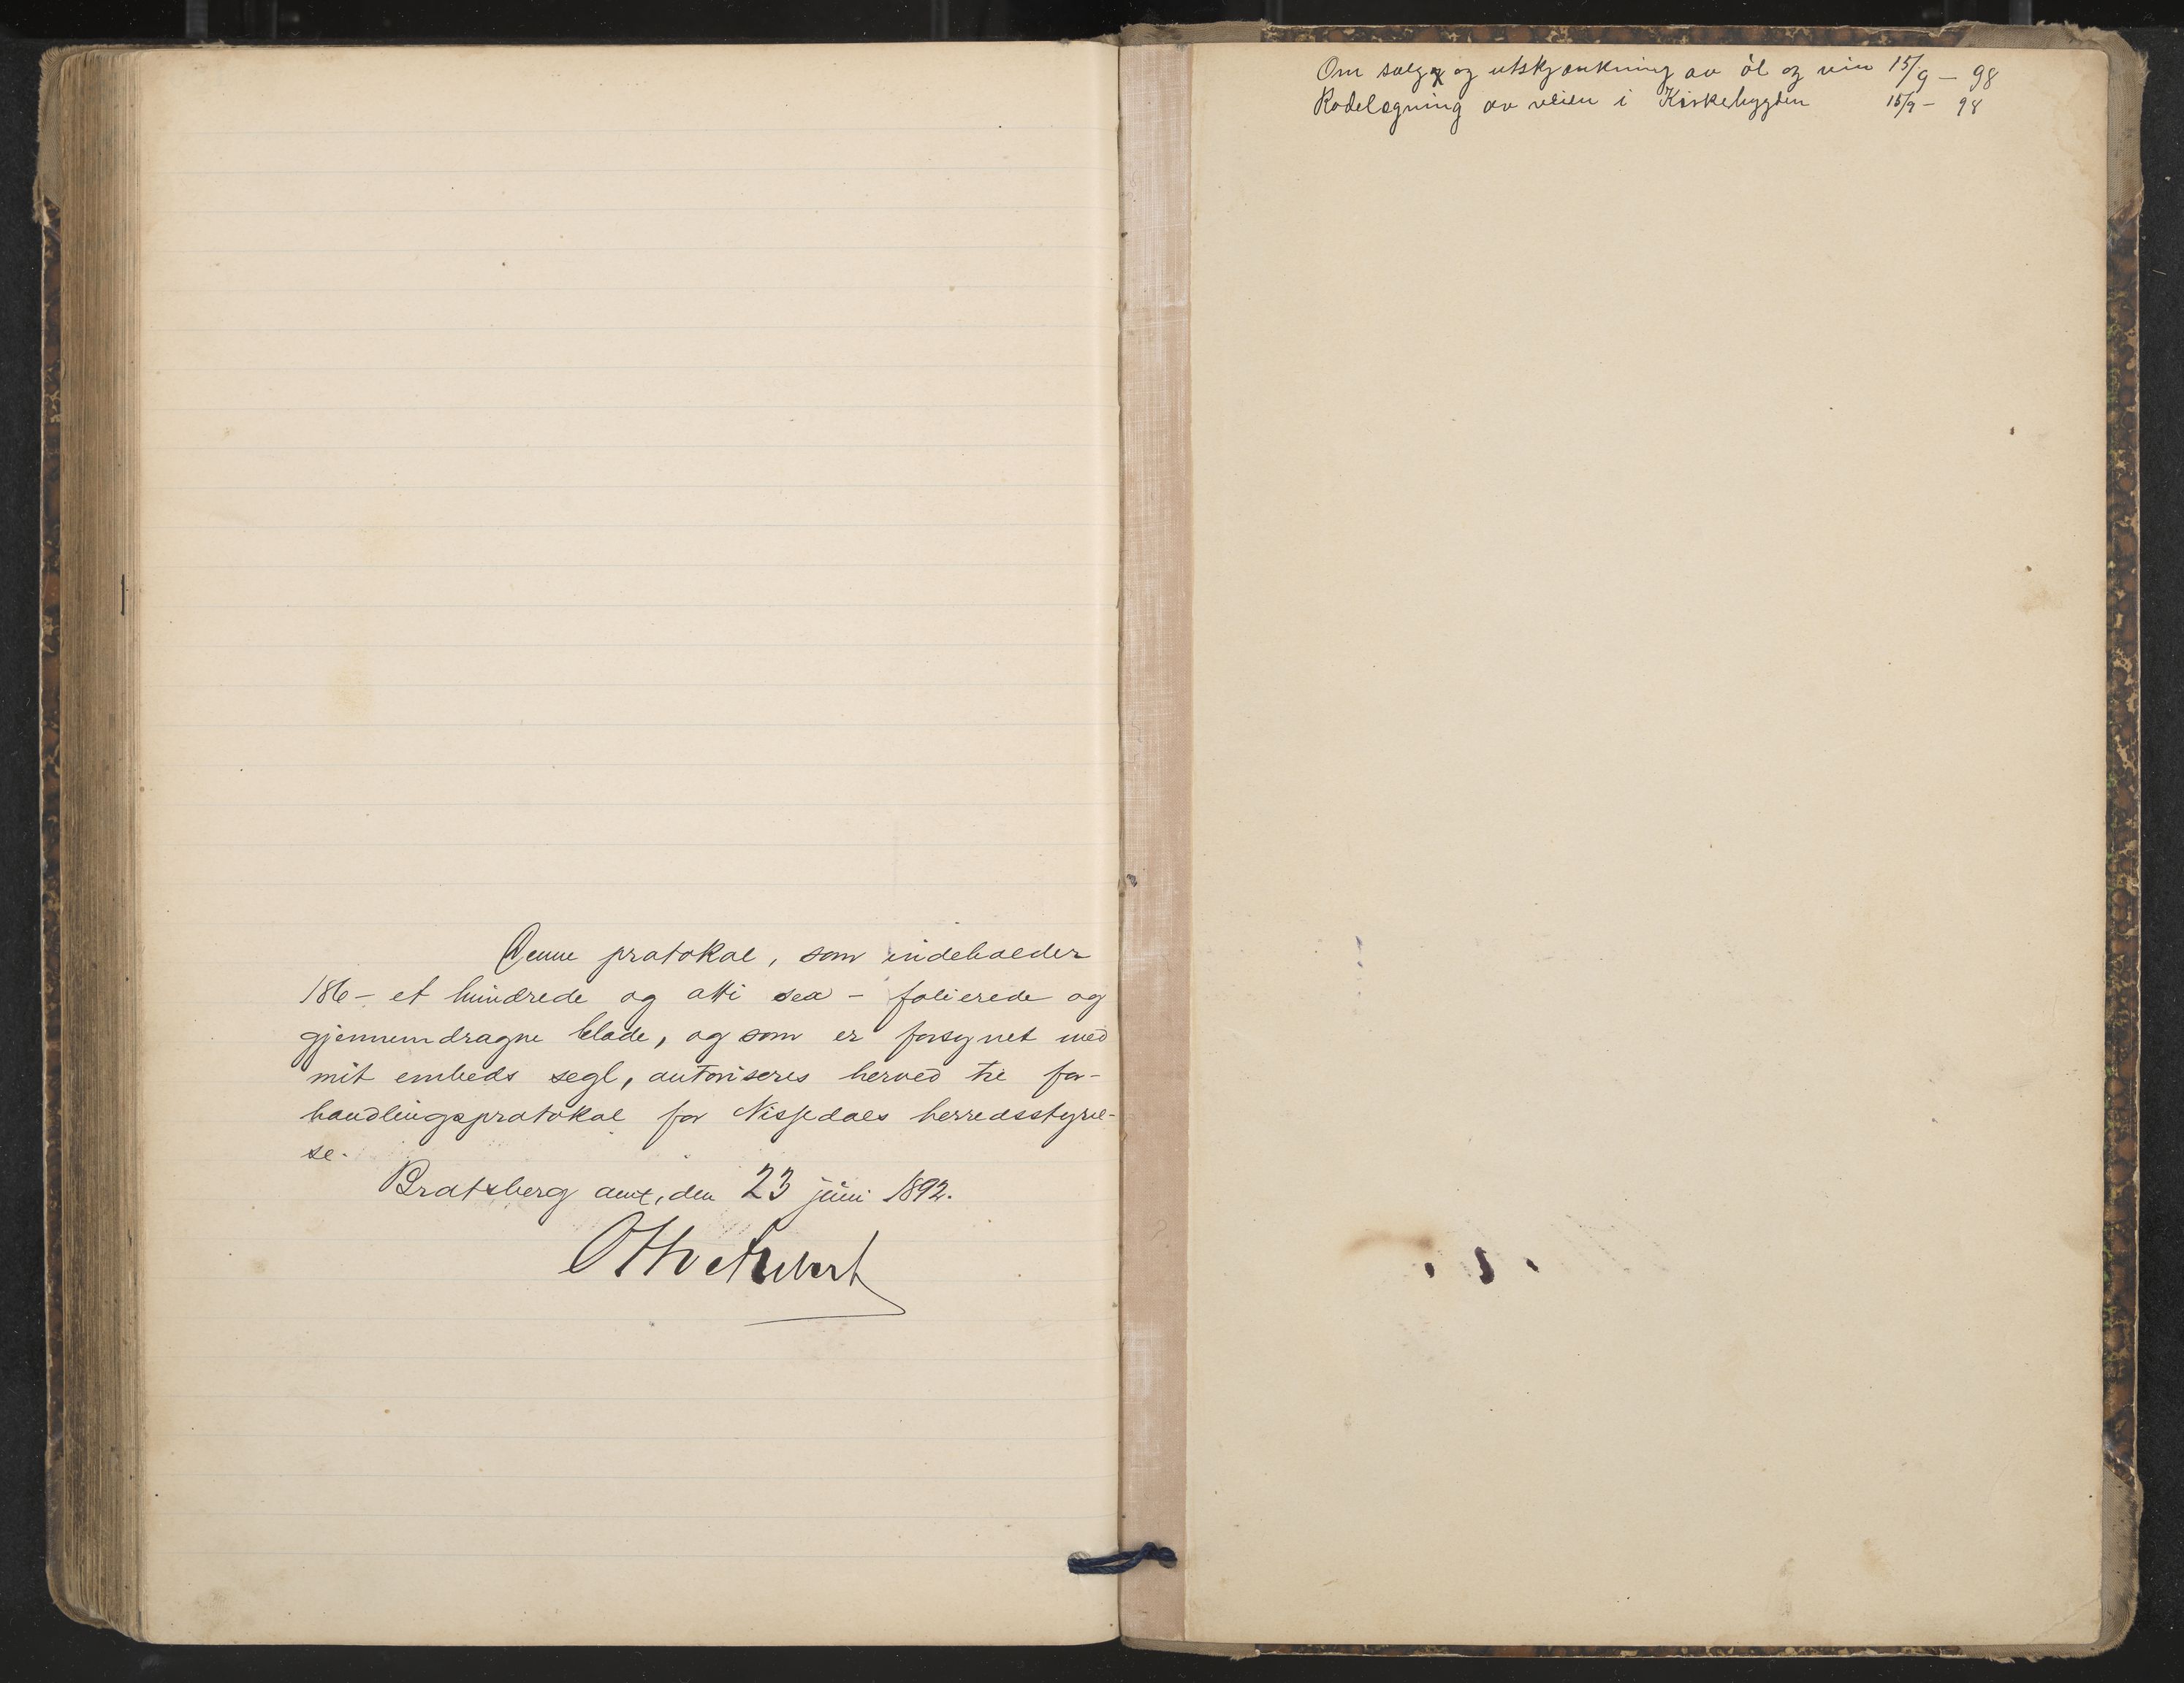 Denne protokol, som indeholder
186 - et hundrede og otti sex - folierede og
gjennemdragne blade, og som er forsynet med
mit embeds segl, autoriseres herved til for-
handlingsprotokol for Nissedals herredsstyrel-
se.
Bratsberg amt, den 23 juni 1892.
Om salg og utskjænkning av öl og vin 15/9 - 98
Rodelægning av veien i Kirkebygden 15/9 - 98